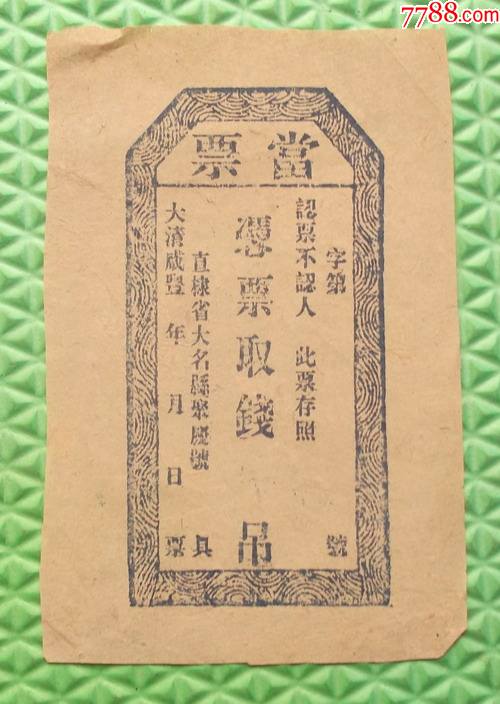 7788.com
當票
字第 號
認票不認人 此票存照
憑票取錢 吊
直棣省大名縣聚慶號 具
大清咸豐 年 月 日 票